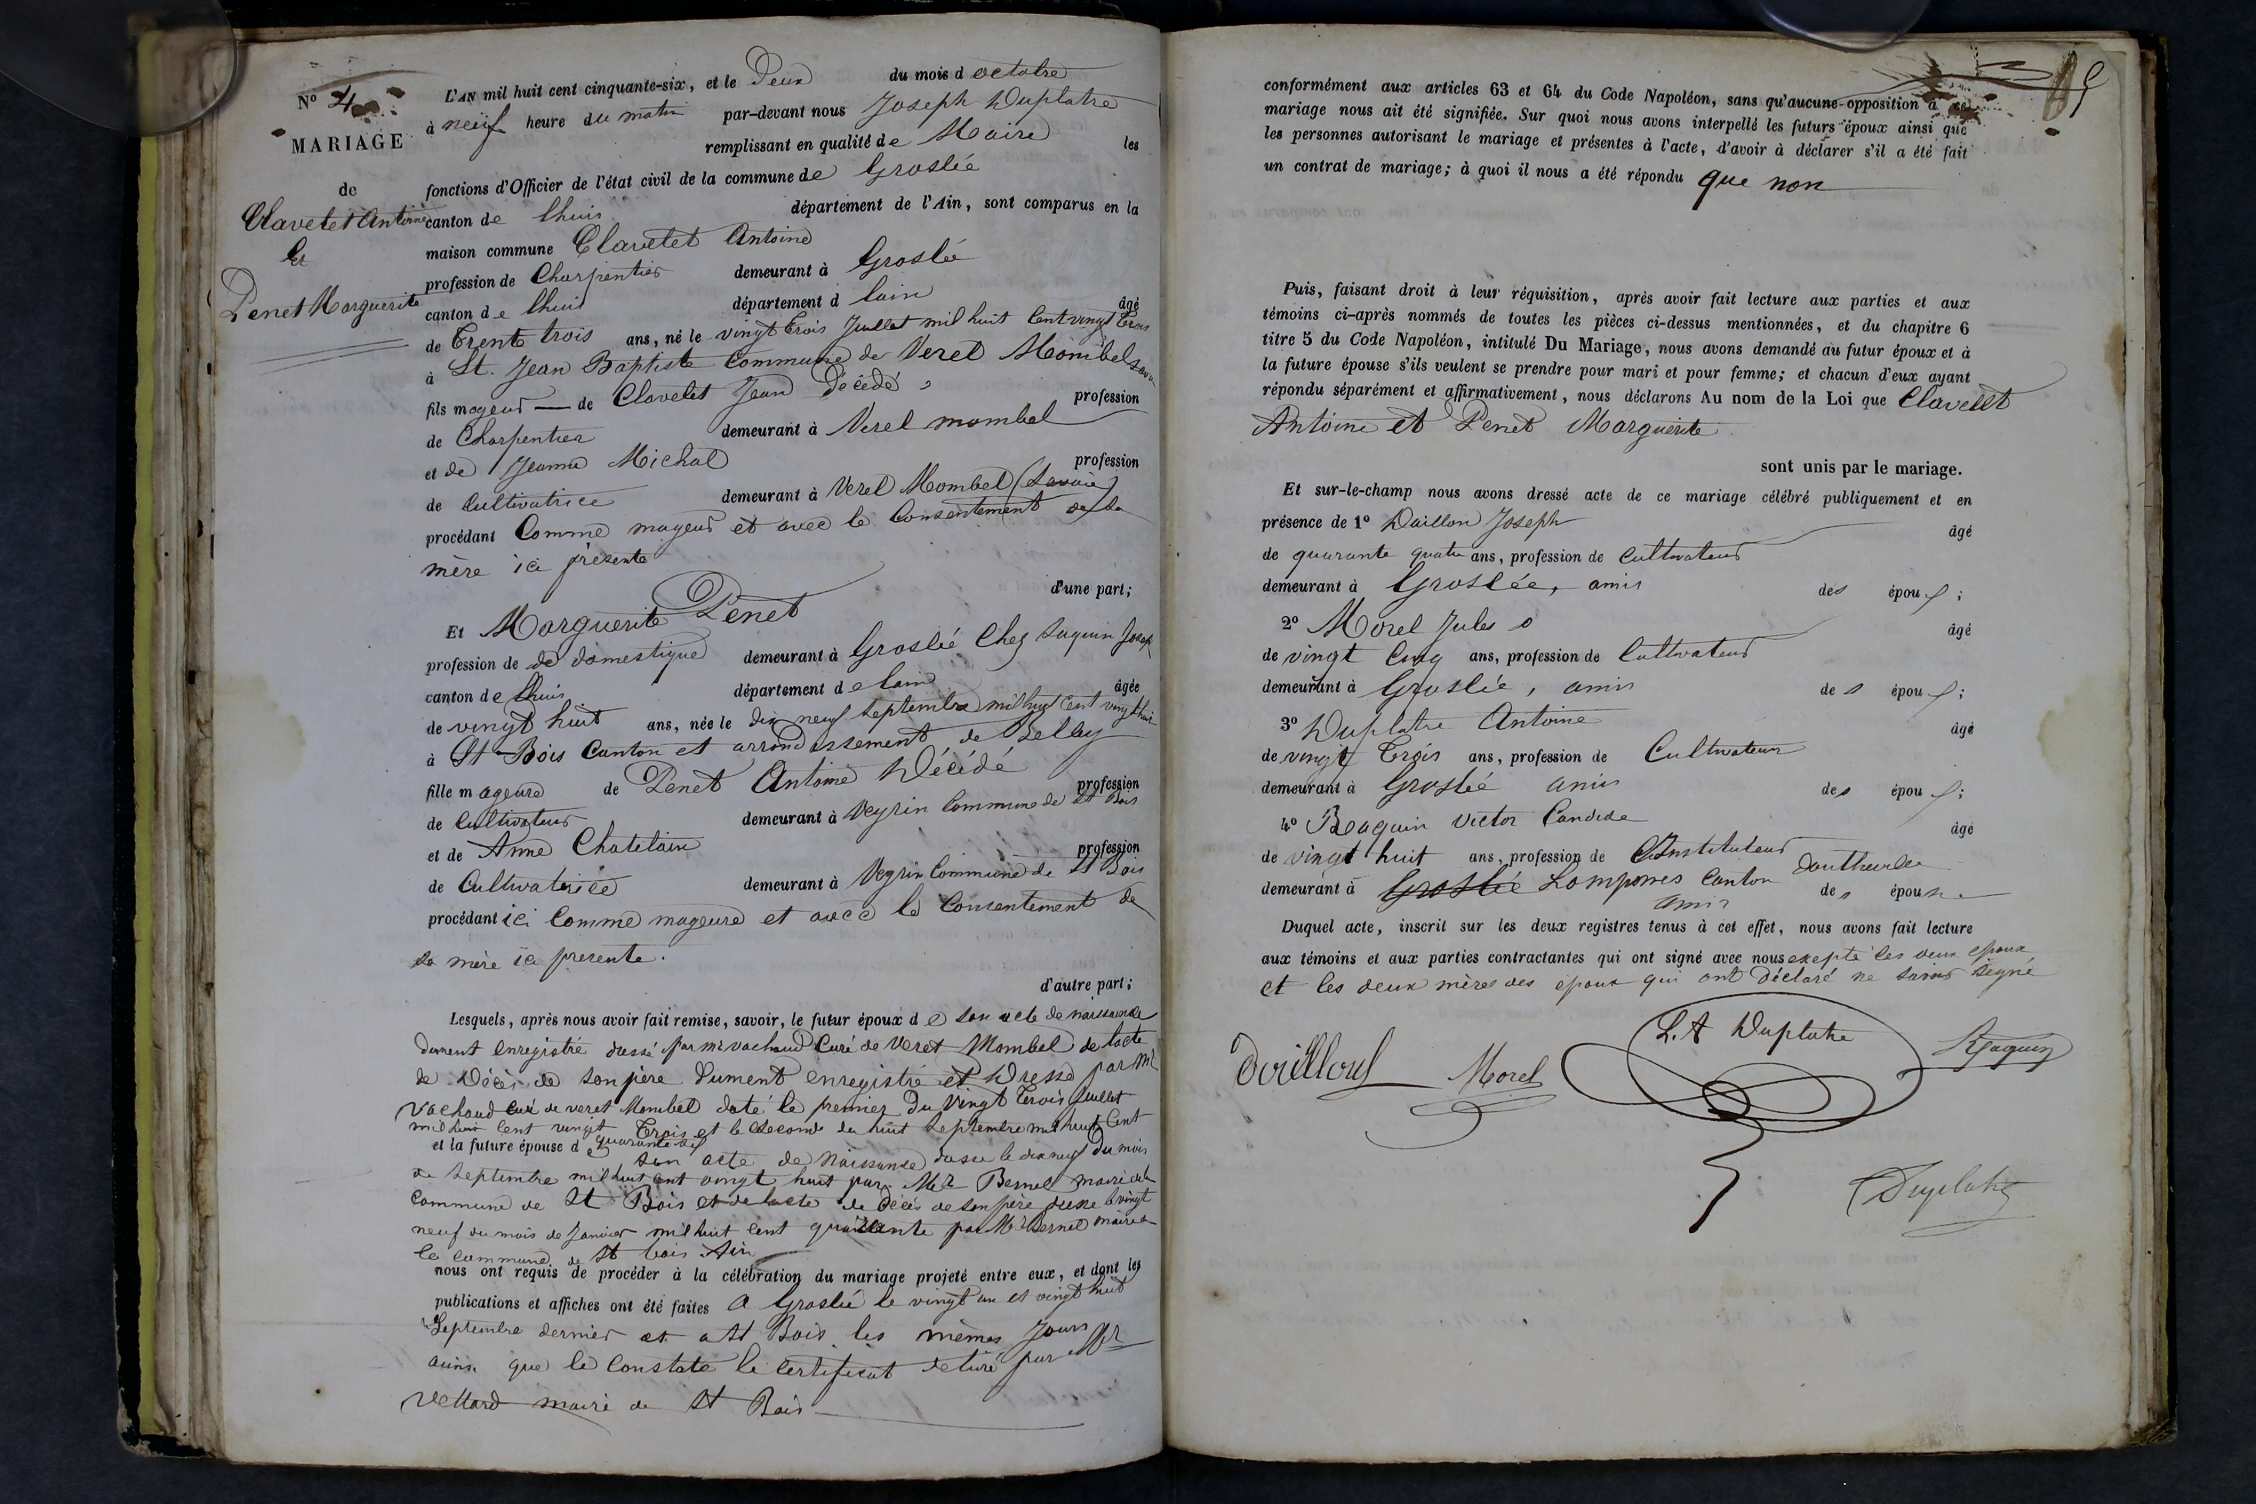 N° 4
MARIAGE
de
Clavelet Antoine
Et
Penet Marguerite
L'AN mil huit cent cinquante-six, et le Deux du mois d octobre
à neuf heure du matin par-devant nous Joseph Duplatre
remplissant en qualité de Maire les
fonctions d'Officier de l'état civil de la commune de Groslée
canton de Lhuis département de l'Ain, sont comparus en la
maison commune Clavelet Antoine
profession de Charpentier demeurant à Groslée
canton de Lhuis département d lain âgé
de Trente trois ans, né le vingt trois Juillet mil huit Cent vingt Trois
à St. Jean Baptiste Commune de Verel Mombel
fils mageur de Clavelet Jean Décédé profession
de Charpentier demeurant à Verel mombel
et de Jeanne Michal profession
de Cultivatrice demeurant à Verel Mombel (Savoie)
procédant Comme mageur et avec le Consentement de Sa
mère ici présente
d'une part;
Et Marguerite Penet
profession de de domestique demeurant à Groslée Chez Suquin Joseph
canton de Lhuis département de lain âgée
de vingt huit ans, née le dix neuf Septembre mil huit Cent vingt huit
à St Bois Canton et arrondissement de Belley
fille mageure de Penet Antoine Décédé profession
de Cultivateur demeurant à Veyrin Commune de St Bois
et de Anne Chatelain profession
de Cultivatrice demeurant à Veyrin Commune de St Bois
procédant ici Comme mageure et avec le Consentement de
sa mère ici presente.
d'autre part;
Lesquels, après nous avoir fait remise, savoir, le futur époux de son acte de naissance
dument enregistré dressé par Mr Vachaud Curé de Verel Mombel de lacte
de Décès de son père Dument enregistré et Dressé par Mr
Vachaud Curé de verel Mombel daté le premier Du Vingt Trois Juillet
mil huit Cent vingt Trois et le Second du huit Septembre mil huit Cent
quarante
et la future épouse de son acte de Naissance dressé le dix neuf Du mois
de Septembre mil huit cent vingt huit par Mr Bernel maire de la
Commune de St Bois et de lacte de Décès de son père dressé le vingt
neuf du mois de Janvier mil huit Cent quarante par Mr Bernel maire de
la commune de St bois Ain
nous ont requis de procéder à la célébration du mariage projeté entre eux, et dont les
publications et affiches ont été faites a Groslée le vingt un et vingt huit
Septembre dernier et a St Bois les mêmes Jours
ainsi que le Constate le Certificat delivré par Mr
Vettard maire de St Bois
conformément aux articles 63 et 64 du Code Napoléon, sans qu'aucune opposition à ce
mariage nous ait été signifiée. Sur quoi nous avons interpellé les futurs époux ainsi que
les personnes autorisant le mariage et présentes à l'acte, d'avoir à déclarer s'il a été fait
un contrat de mariage; à quoi il nous a été répondu que non
Puis, faisant droit à leur réquisition, après avoir fait lecture aux parties et aux
témoins ci-après nommés de toutes les pièces ci-dessus mentionnées, et du chapitre 6
titre 5 du Code Napoléon, intitulé Du Mariage, nous avons demandé au futur époux et à
la future épouse s'ils veulent se prendre pour mari et pour femme; et chacun d'eux ayant
répondu séparément et affirmativement, nous déclarons Au nom de la Loi que Clavelet
Antoine et Penet Marguerite
sont unis par le mariage.
Et sur-le-champ nous avons dressé acte de ce mariage célébré publiquement et en
présence de 1° Douillou Joseph âgé
de quarante quatre ans, profession de Cultivateur
demeurant à Groslée, amis des époux;
2° Morel Jules âgé
de vingt Cinq ans, profession de Cultivateur
demeurant à Groslée, amis des époux;
3° Duplatre Antoine âgé
de vingt Trois ans, profession de Cultivateur
demeurant à Groslée amis des époux;
4° Roquin Victor Candide âgé
de vingt huit ans, profession de Instituteur
demeurant à Groslée Lompnes Canton
amis des époux.
Duquel acte, inscrit sur les deux registres tenus à cet effet, nous avons fait lecture
aux témoins et aux parties contractantes qui ont signé avec nous exepté les deux epoux
et les deux mères des epoux qui ont déclaré ne savoir signé
Douillou Morel L. A Duplatre Roquin
Duplatre